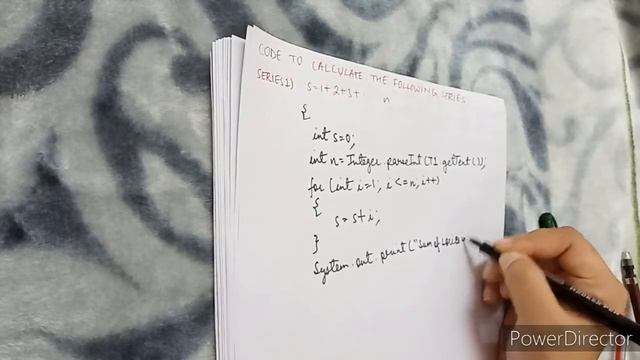 CODE TO CALCULATE THE FOLLOWING SERIES
SERIES1) S=1+2+3+ n
{
int s=0;
int n=Integer.parseInt(T1.getText());
for (int i=1; i<=n; i++)
{
s=s+i;
}
System.out.print("Sum of
PowerDirector